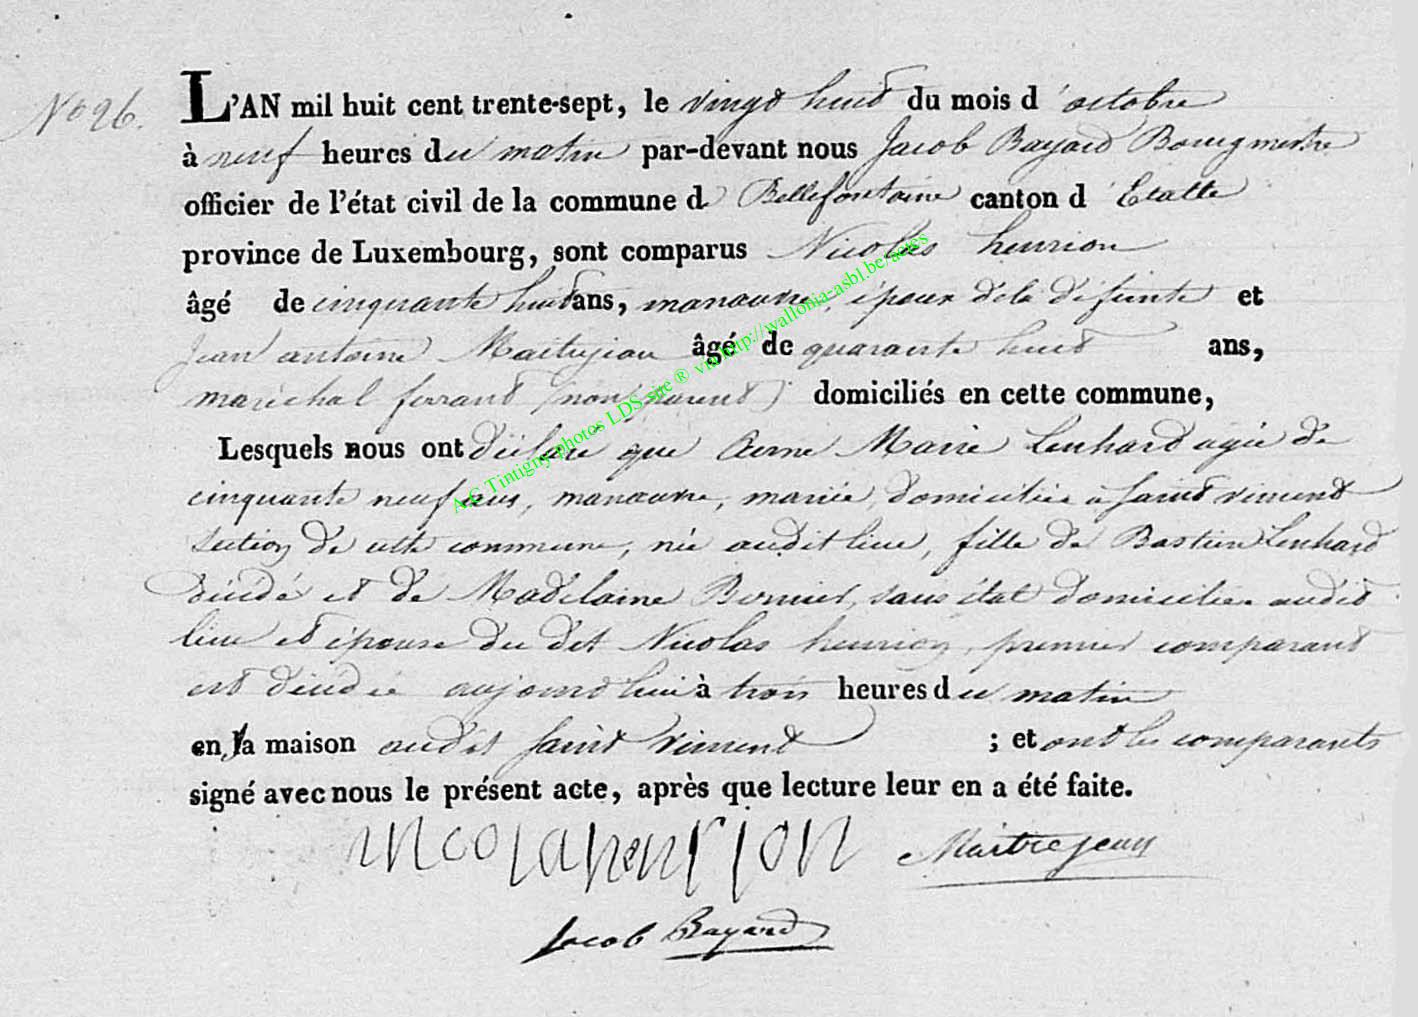 N° 26.
L'AN mil huit cent trente-sept, le vingt huit du mois d'octobre
à neuf heures du matin par-devant nous Jacob Bayard Bourgmestre
officier de l'état civil de la commune de Bellefontaine canton d'Etalle
province de Luxembourg, sont comparus Nicolas henrion
âgé de cinquante huit ans, manœuvre, époux de la défunte et
Jean antoine Maitrejean âgé de quarante huit ans,
maréchal ferrant (non parent) domiciliés en cette commune,
Lesquels nous ont déclaré que Anne Marie Lenhard agée de
cinquante neuf ans, manœuvre, mariée, domiciliée à saint vincent
section de cette commune, née audit lieu, fille de Bastien Lenhard
décédé et de Madelaine, sans état domiciliée audit
lieu et épouse du dit Nicolas henrion, premier comparant
est décédée aujourd'hui à trois heures du matin
en sa maison audit saint vincent ; et ont les comparants
signé avec nous le présent acte, après que lecture leur en a été faite.
nicolas henrion Maitrejean
Jacob Bayard
A.C Tintigny photos LDS site ® via http://wallonia-asbl.be/actes